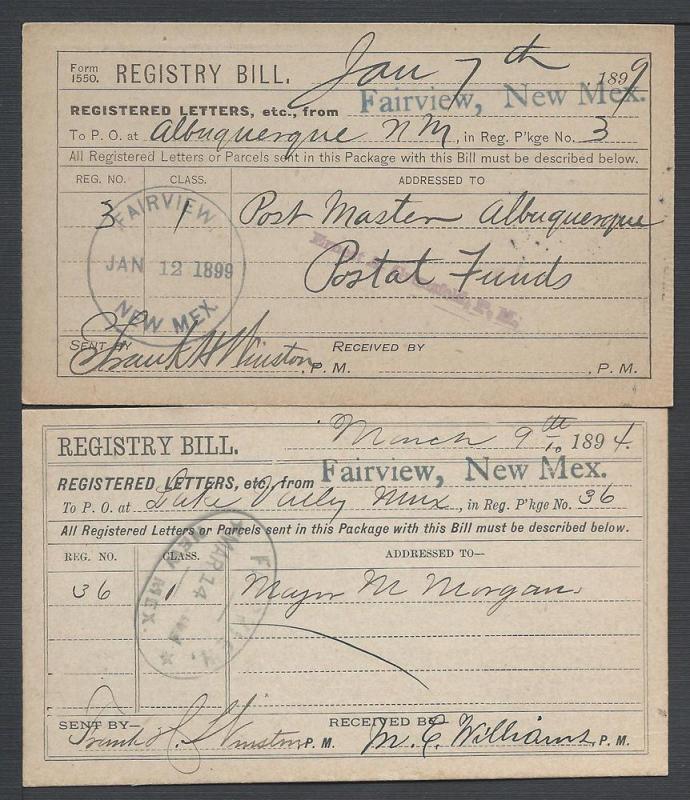 Jan 7th 1899
Form 1550. REGISTRY BILL.
REGISTERED LETTERS, etc., from Fairview, New Mex.
To P. O. at Albuquerque N M, in Reg. P'kge No. 3
All Registered Letters or Parcels sent in this Package with this Bill must be described below.
REG. NO. CLASS. ADDRESSED TO
3 1 Post Master Albuquerque
Postal Funds
FAIRVIEW
JAN 12 1899
NEW MEX.
P. M.
SENT BY Frank H Winston, P. M. RECEIVED BY , P. M.
March 9th 1894.
REGISTRY BILL.
REGISTERED LETTERS, etc., from Fairview, New Mex.
To P. O. at Lake Vally Mex, in Reg. P'kge No. 36
All Registered Letters or Parcels sent in this Package with this Bill must be described below.
REG. NO. CLASS. ADDRESSED TO—
36 1 Major M Morgan
MAR 14
NEW MEX.
SENT BY— Frank H. Winston P. M. RECEIVED BY— M. C. Williams, P. M.